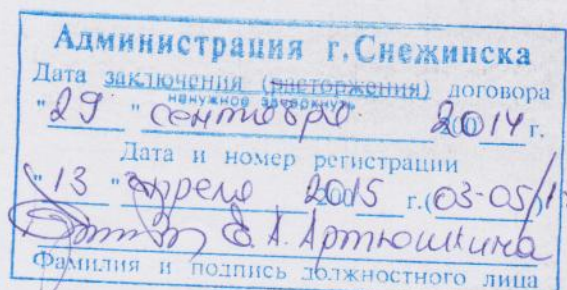 Администрация г.Снежинска
Дата заключения (расторжения) договора
ненужное зачеркнуть
"29" сентября 2014 г.
Дата и номер регистрации
"13" апреля 2015 г.(03-05/1
Е.А. Артюшкина
Фамилия и подпись должностного лица